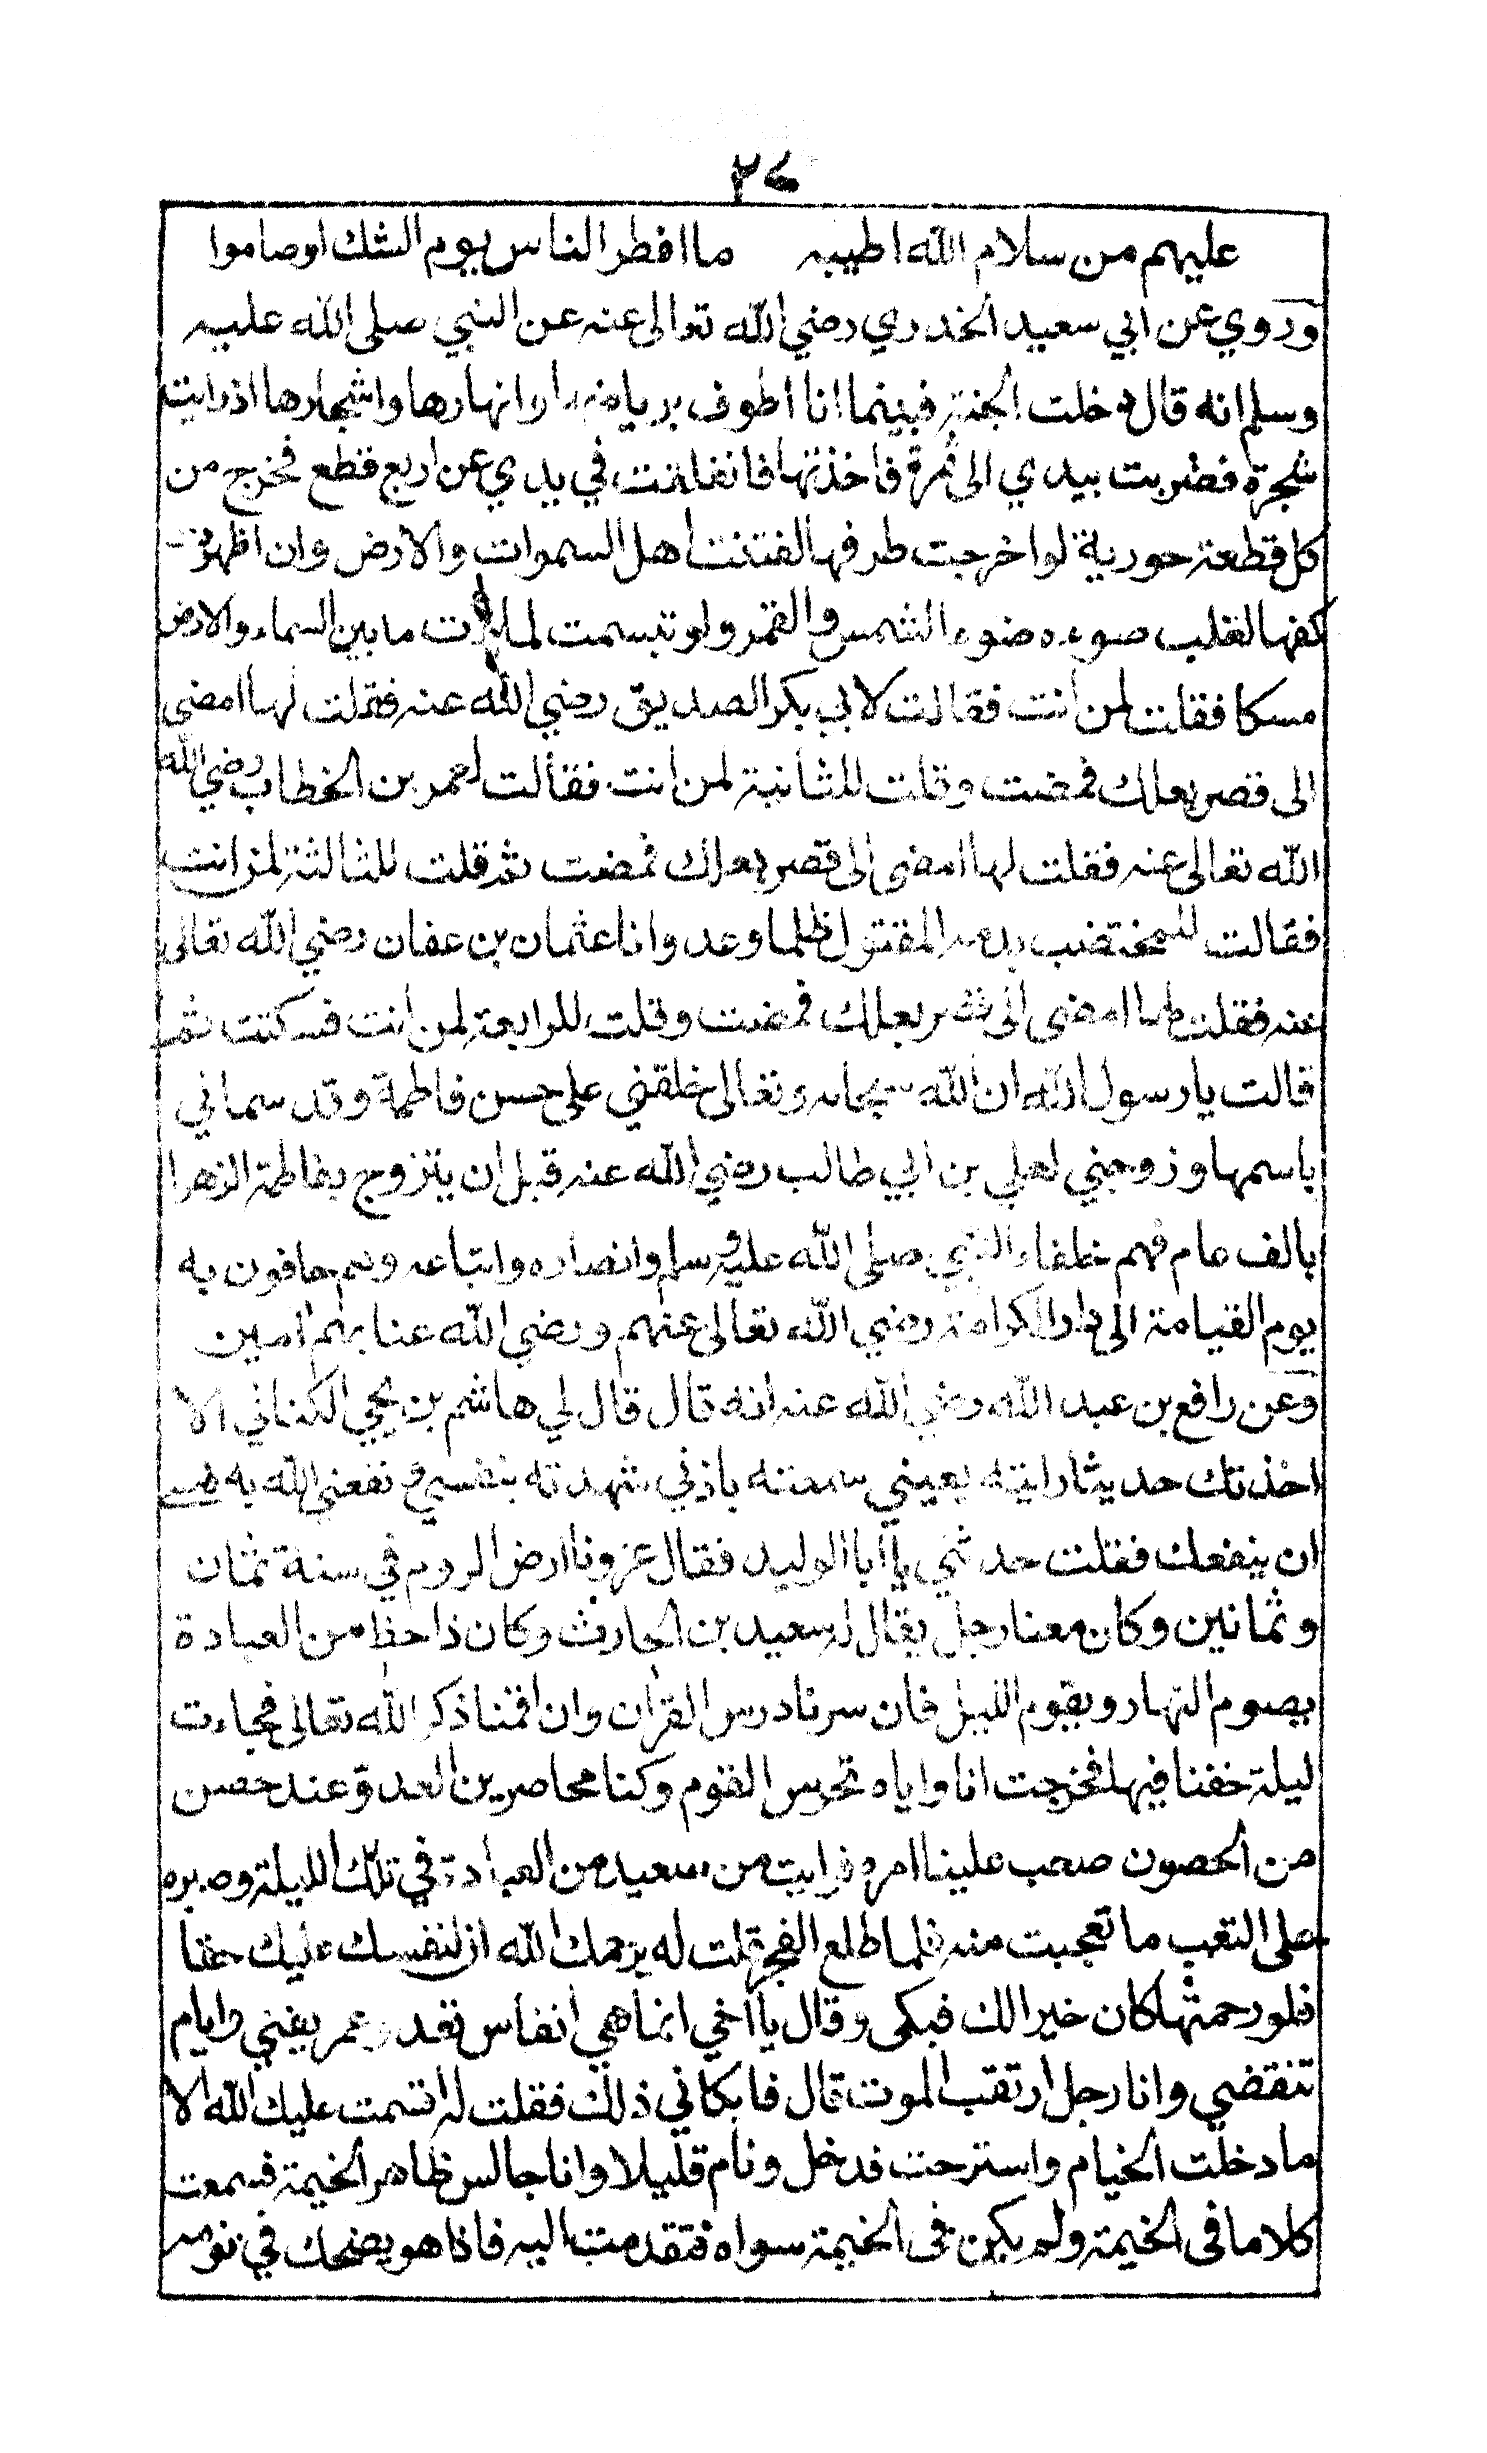 ٢٧
عليهم من سلام الله اطيبه ما افطر الناس يوم الشك او صاموا
وروي عن ابي سعيد الخدري رضي الله تعالى عنه عن النبي صلى الله عليه
وسلم انه قال دخلت الجنة فبينما انا اطوف برياضها وانهارها واشجارها اذ رايت
شجرة فضربت بيدي الى ثمرة فاخذتها فانفلقت في يدي عن اربع قطع فخرج من
كل قطعة حورية لو اخرجت ظرفها لفتنت اهل السموات والارض وان اظهرت
كفها لغلب ضوءه ضوء الشمس والقمر ولو تبسمت لملأت ما بين السماء والارض
مسكا فقلت لمن انت فقالت لابي بكر الصديق رضي الله عنه فقلت لها امضى
الى قصر بعلك فمضت وقلت للثانية لمن انت فقالت لعمر بن الخطاب رضي الله
الله تعالى عنه فقلت لها امضى الى قصر بعلك فمضت ثم قلت للثالثة لمن انت
فقالت للمختضب بدمه المقتول ظلما وعدوانا عثمان بن عفان رضي الله تعالى
عنه فقلت لها امضى الى قصر بعلك فمضت وقلت للرابعة لمن انت فسكتت ثم
قالت يا رسول الله ان الله سبحانه وتعالى خلقني على حسن فاطمة وقد سماني
باسمها وزوجني لعلي بن ابي طالب رضي الله عنه قبل ان يتزوج بفاطمة الزهرا
بالف عام فهم خلفاء النبي صلى الله عليه وسلم وانصاره واتباعه وهم حافون به
يوم القيامة الى دار الكرامة رضي الله تعالى عنهم ورضي الله عنا بهم امين
وعن رافع بن عبد الله رضي الله عنه انه قال قال لي هاشم بن يحي الكناني الا
احذتك حديثا رايته بعيني سمعته باذني شهدته بنفسي ونفعني الله به فعسى
ان ينفعك فقلت حدثني يا ابا الوليد فقال غزونا ارض الروم في سنة ثمان
وثمانين وكان معنا رجل يقال له سعيد بن الحارث وكان ذا حظ من العبادة
يصوم النهار ويقوم الليل فان سرنا درس القران وان اقمنا ذكر الله تعالى فجاءت
ليلة خفنا فيها فخرجت انا واياه نحرس القوم وكنا محاصرين العدو عند حصن
من الحصون صعب علينا امره فرايت من سعيد من العبادة في تلك الليلة وصبره
على التعب ما تعجبت منه فلما طلع الفجر قلت له يرحمك الله ان لنفسك عليك حقا
فلو رحمتها كان خيرا لك فبكى وقال يا اخي انما هي انفاس تعد وعمر يفني وايام
تنقضي وانا رجل ارتقب الموت قال فابكاني ذلك فقلت له اقسمت عليك الله الا
ما دخلت الخيام واسترحت فدخل ونام قليلا وانا جالس ظاهر الخيمة فسمعت
كلاما في الخيمة ولم يكن في الخيمة سواه فتقدمت اليه فاذا هو يضحك في نومه